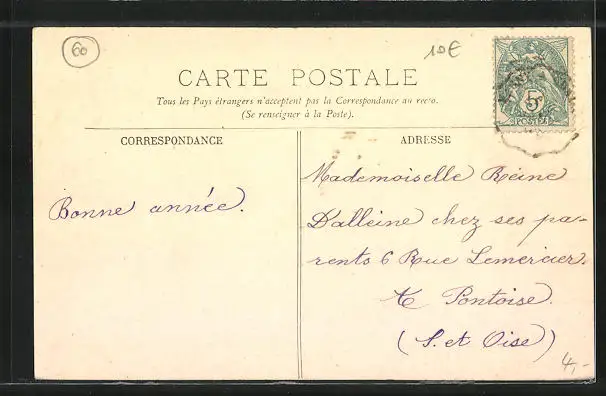 60
10€
CARTE POSTALE
Tous les Pays étrangers n'acceptent pas la Correspondance au recto.
(Se renseigner à la Poste).
5c
POSTES
CORRESPONDANCE
ADRESSE
Bonne année.
Mademoiselle Reine
Dalleine chez ses pa-
rents 6 Rue Lemercier.
Pontoise.
(S. et Oise)
4,-